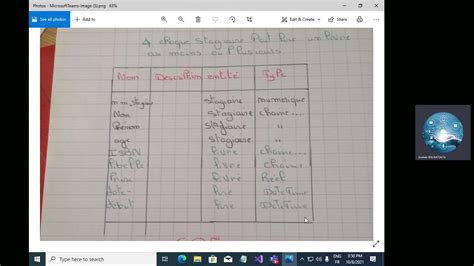 Photos - MicrosoftTeams-image (5).png 63%
See all photos + Add to
Edit & Create Share
4 chaque stagiaire peut lire un livre
ou moins ou plusieurs.
Nom Description entité Type
num stagiaire stagiaire numerique
Nom stagiaire chaine....
Prénom stagiaire "
age stagiaire "
ISBN livre chaine...
livre chaine
livre Réel
date- lire DateTime
debut lire DateTime
Type here to search
ENG
FR
3:50 PM
10/6/2021